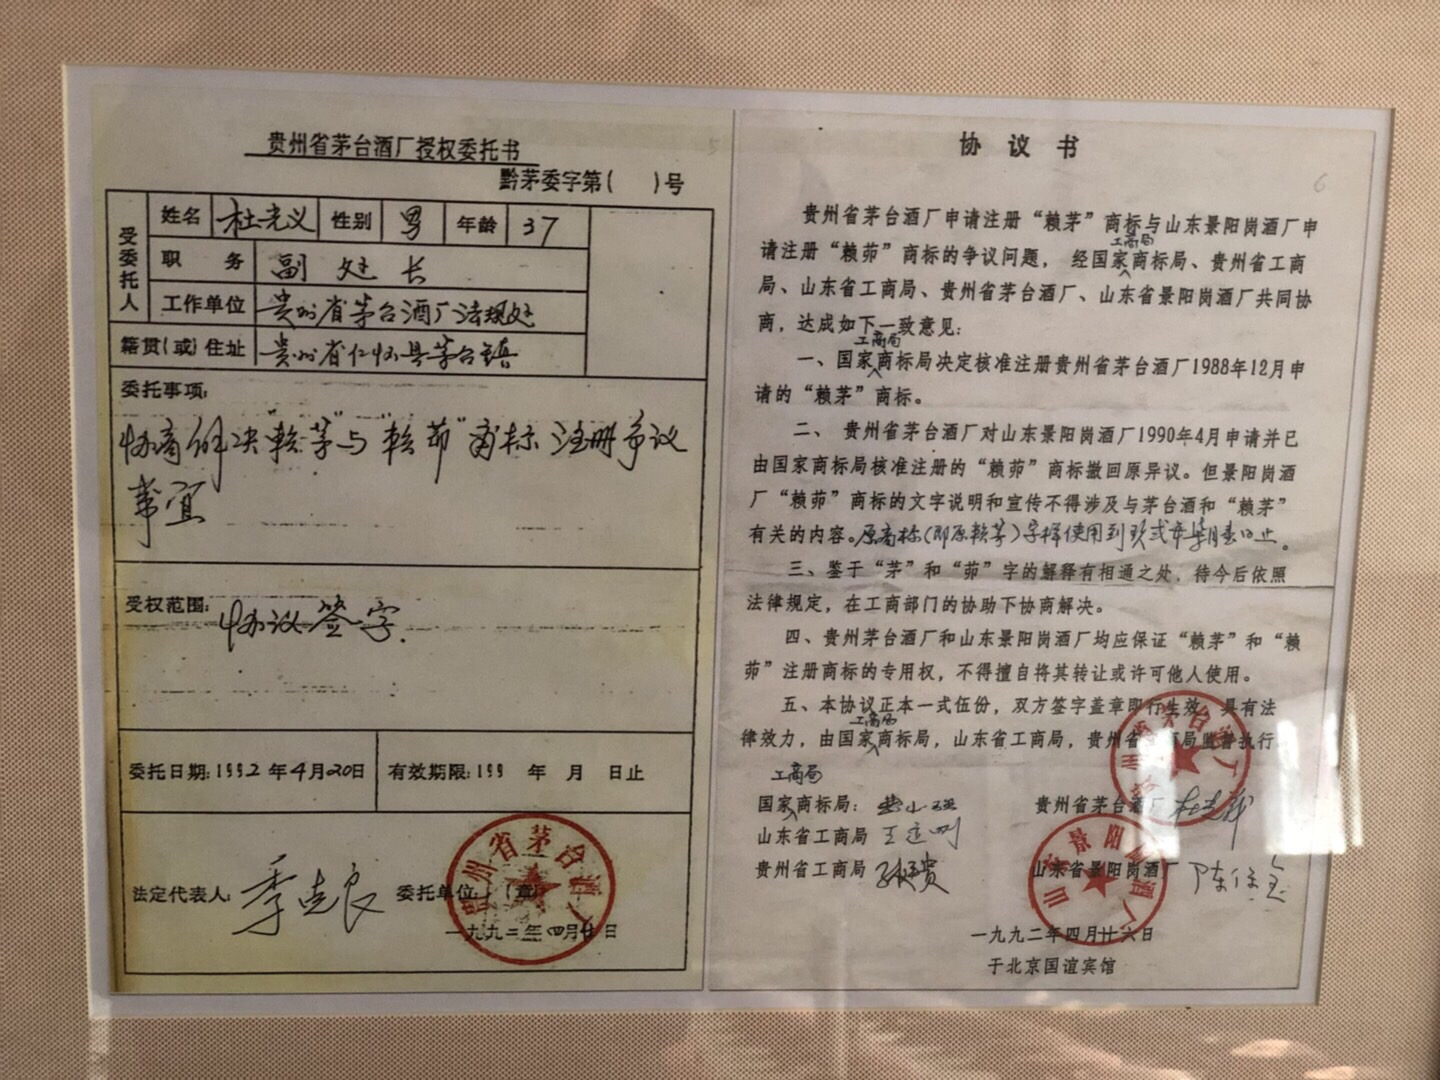 贵州省茅台酒厂授权委托书
黔茅委字第( )号
受委托人
姓名 杜光义 性别 男 年龄 37
职 务 副处长
工作单位 贵州省茅台酒厂法规处
籍贯(或)住址 贵州省仁怀县茅台镇
委托事项:
协商解决"赖茅"与"赖茆"商标注册争议
事宜
受权范围: 协议签字.
委托日期:1992年4月20日 有效期限:199 年 月 日止
法定代表人: 季克良 委托单位: (章)
贵州省茅台酒厂
一九九二年四月廿日
协 议 书
6
贵州省茅台酒厂申请注册“赖茅”商标与山东景阳岗酒厂申
工商局
请注册“赖茆”商标的争议问题，经国家商标局、贵州省工商
局、山东省工商局、贵州省茅台酒厂、山东省景阳岗酒厂共同协
商，达成如下一致意见:
工商局
一、国家商标局决定核准注册贵州省茅台酒厂1988年12月申
请的“赖茅”商标。
二、 贵州省茅台酒厂对山东景阳岗酒厂1990年4月申请并已
由国家商标局核准注册的“赖茆”商标撤回原异议。但景阳岗酒
厂“赖茆”商标的文字说明和宣传不得涉及与茅台酒和“赖茅”
有关的内容。原商标(即原赖茅)字样使用到玖贰年柒月壹日止。
三、鉴于“茅”和“茆”字的解释有相通之处，待今后依照
法律规定，在工商部门的协助下协商解决。
四、贵州茅台酒厂和山东景阳岗酒厂均应保证“赖茅”和“赖
茆”注册商标的专用权，不得擅自将其转让或许可他人使用。
五、本协议正本一式伍份，双方签字盖章即行生效，具有法
工商局
律效力，由国家商标局，山东省工商局，贵州省工商局监督执行
工商局
国家商标局: 贵州省茅台酒厂 杜光义
山东省工商局
贵州省工商局 山东省景阳岗酒厂
贵州省茅台酒厂
山东景阳岗酒厂
一九九二年四月廿六日
于北京国谊宾馆